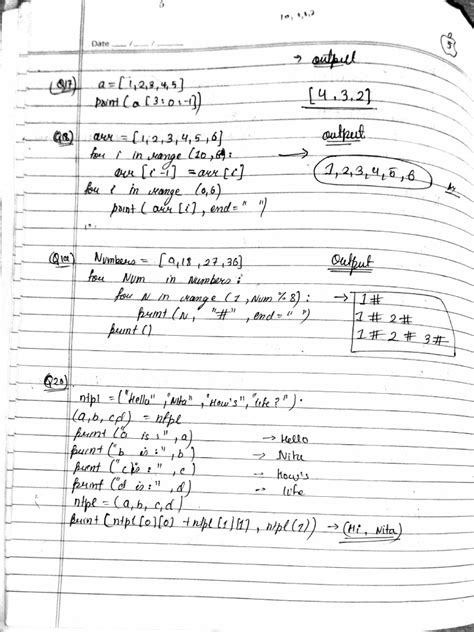 Date
→ output
Q17) a = [1,2,3,4,5]
print (a [3:0:-1])
[4,3,2]
Q18) arr = [1,2,3,4,5,6]
output
for i in range (10,6):
arr [i-1] = arr [i]
→ 1,2,3,4,5,6
for i in range (0,6)
print (arr [i], end = " ")
Numbers = [9,18,27,36]
Output
for Num in Numbers :
for N in range (1, Num % 8) :
→ 1#
print (N, "#", end = " ")
1# 2#
print ()
1# 2# 3#
Q20)
ntpl = ("Hello", "Nita", "How's", "life?")
(a,b,c,d) = ntpl
print ("a is:", a) → Hello
print ("b is:", b) → Nita
print ("c is:", c) → How's
print ("d is:", d) -- life
ntpl = (a,b,c,d)
print (ntpl [0][0] + ntpl [1][1], ntpl (1)) → (Hi, Nita)